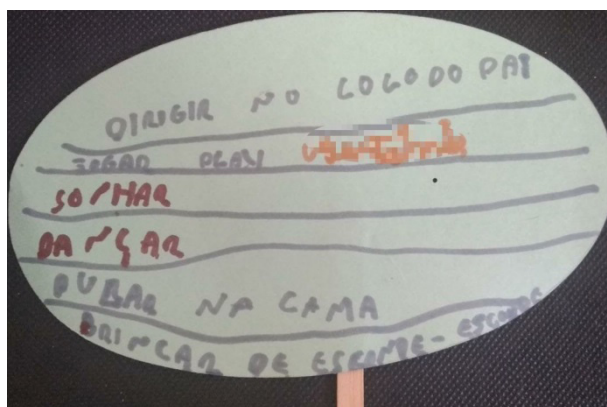 DIRIGIR NO COLO DO PAI
JOGAR PLAY
SONHAR
DANÇAR
PULAR NA CAMA
BRINCAR DE ESCONDE-ESCONDE